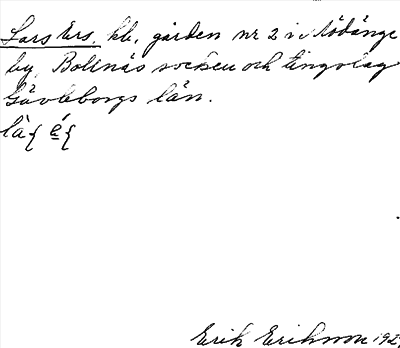 Lars Ers. kb. gården nr 2 i Röдänge
by, Bollnäs socken och tingslag
Gävleborgs län.
là{ é{
Erik Erikson 192